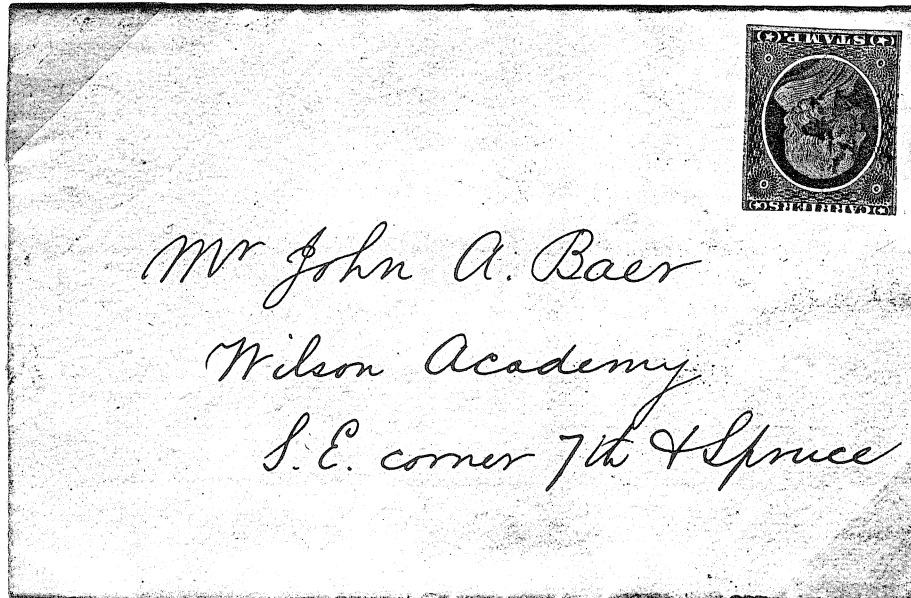 CARRIERS
STAMP.
Mr John A. Baer
Wilson Academy
S. E. corner 7th & Spruce